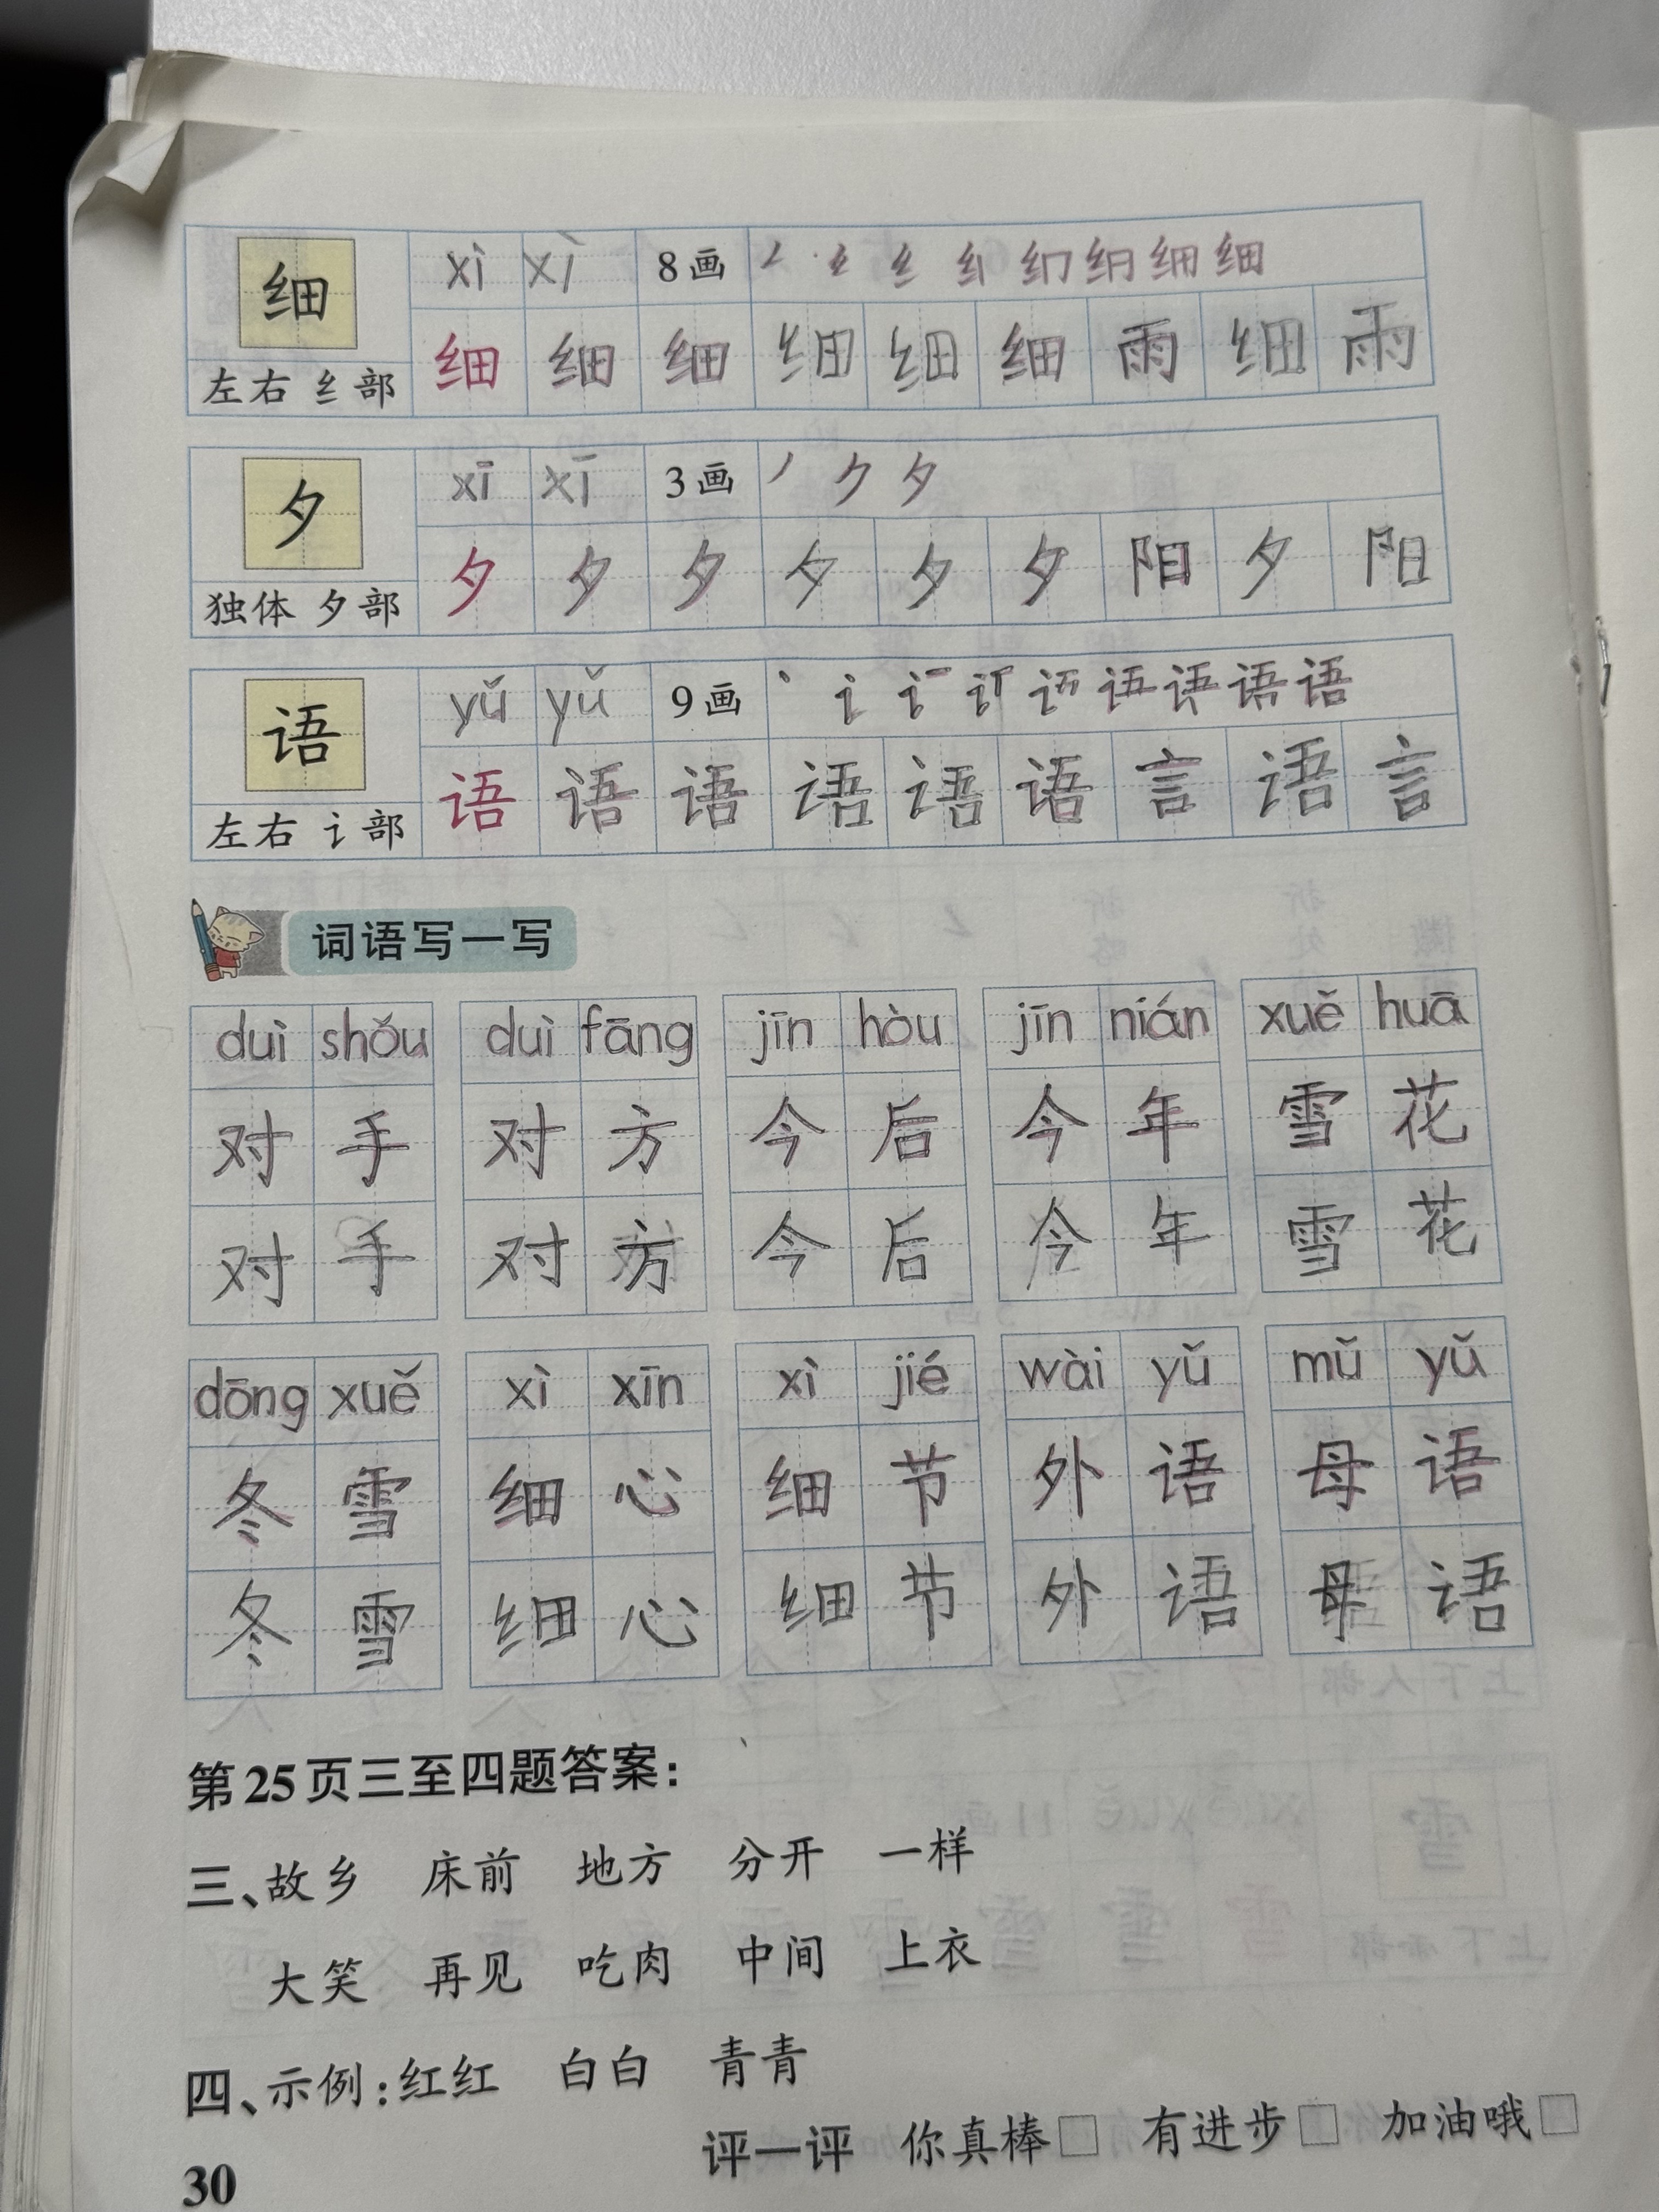 细 xì xì 8画 纟 纟 纟 细 细 细 细 细
左右 纟部 细 细 细 细 细 细 雨 细 雨
夕 xī xī 3画 丿 ク 夕
独体 夕部 夕 夕 夕 夕 夕 夕 阳 夕 阳
语 yǔ yǔ 9画 丶 讠 语 语
左右 讠部 语 语 语 语 语 语 言 语 言
词语写一写
duì shǒu duì fāng jīn hòu jīn nián xuě huā
对手 对方 今后 今年 雪花
对手 对方 今后 今年 雪花
dōng xuě xì xīn xì jié wài yǔ mǔ yǔ
冬雪 细心 细节 外语 母语
冬雪 细心 细节 外语 母语
第25页三至四题答案：
三、故乡 床前 地方 分开 一样
大笑 再见 吃肉 中间 上衣
四、示例：红红 白白 青青
评一评 你真棒□ 有进步□ 加油哦□
30